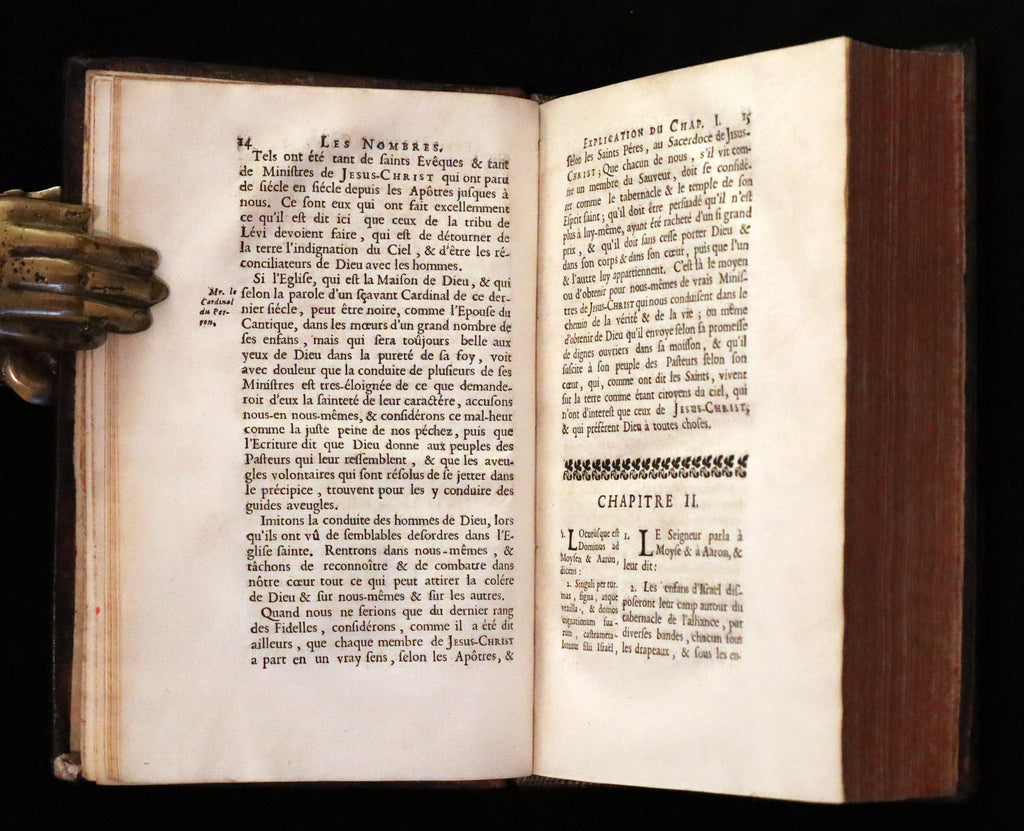 14 LES NOMBRES.
Tels ont été tant de ſaints Evêques & tant
de Miniſtres de JESUS-CHRIST qui ont paru
de ſiécle en ſiécle depuis les Apôtres juſques à
nous. Ce ſont eux qui ont fait excellemment
ce qu'il eſt dit ici que ceux de la tribu de
Lévi devoient faire, qui eſt de détourner de
la terre l'indignation du Ciel, & d'être les ré-
conciliateurs de Dieu avec les hommes.
Si l'Egliſe, qui eſt la Maiſon de Dieu, & qui
Mr. le
Cardinal
du Per-
ron.
ſelon la parole d'un ſçavant Cardinal de ce der-
nier ſiécle, peut être noire, comme l'Epouſe du
Cantique, dans les mœurs d'un grand nombre de
ſes enfans, mais qui ſera toûjours belle aux
yeux de Dieu dans la pureté de ſa foy, voit
avec douleur que la conduite de pluſieurs de ſes
Miniſtres eſt tres-éloignée de ce que demande-
roit d'eux la ſainteté de leur caractére, accuſons
nous-en nous-mêmes, & conſidérons ce mal-heur
comme la juſte peine de nos péchez, puis que
l'Ecriture dit que Dieu donne aux peuples des
Paſteurs qui leur reſſemblent, & que les aveu-
gles volontaires qui ſont réſolus de ſe jetter dans
le précipice, trouvent pour les y conduire des
guides aveugles.
Imitons la conduite des hommes de Dieu, lors
qu'ils ont vû de ſemblables deſordres dans l'E-
gliſe ſainte. Rentrons dans nous-mêmes, &
tâchons de reconnoître & de combatre dans
nôtre cœur tout ce qui peut attirer la colére
de Dieu & ſur nous-mêmes & ſur les autres.
Quand nous ne ſerions que du dernier rang
des Fidelles, conſidérons, comme il a été dit
ailleurs, que chaque membre de JESUS-CHRIST
a part en un vray ſens, ſelon les Apôtres, &
EXPLICATION DU CHAP. I. 15
ſelon les Saints Péres, au Sacerdoce de JESUS-
CHRIST; Que chacun de nous, s'il vit com-
me un membre du Sauveur, doit ſe conſidé-
rer comme le tabernacle & le temple de ſon
Eſprit ſaint; qu'il doit être perſuadé qu'il n'eſt
plus à luy-même, ayant été racheté d'un ſi grand
prix, & qu'il doit ſans ceſſe porter Dieu &
dans ſon corps & dans ſon cœur, puis que l'un
& l'autre luy appartiennent. C'eſt là le moyen
ou d'obtenir pour nous-mêmes de vrais Miniſ-
tres de JESUS-CHRIST qui nous conduiſent dans le
chemin de la vérité & de la vie; ou même
d'obtenir de Dieu qu'il envoye ſelon ſa promeſſe
de dignes ouvriers dans ſa moiſſon, & qu'il
ſuſcite à ſon peuple des Paſteurs ſelon ſon
cœur, qui, comme ont dit les Saints, vivent
ſur la terre comme étant citoyens du ciel, qui
n'ont d'intereſt que ceux de JESUS-CHRIST,
& qui préférent Dieu à toutes choſes.
CHAPITRE II.
1. Locutúſque eſt
Dominus ad
Moyſen & Aaron,
dicens:
2. Singuli per tur-
mas, ſigna, atque
vexilla, & domos
cognationum ſua-
rum, caſtrameta-
buntur filii Iſraël,
1. LE Seigneur parla à
Moyſe & à Aaron, &
leur dit:
2. Les enfans d'Iſraël diſ-
poſeront leur camp autour du
tabernacle de l'alliance, par
diverſes bandes, chacun ſous
les drapeaux, & ſous les en-